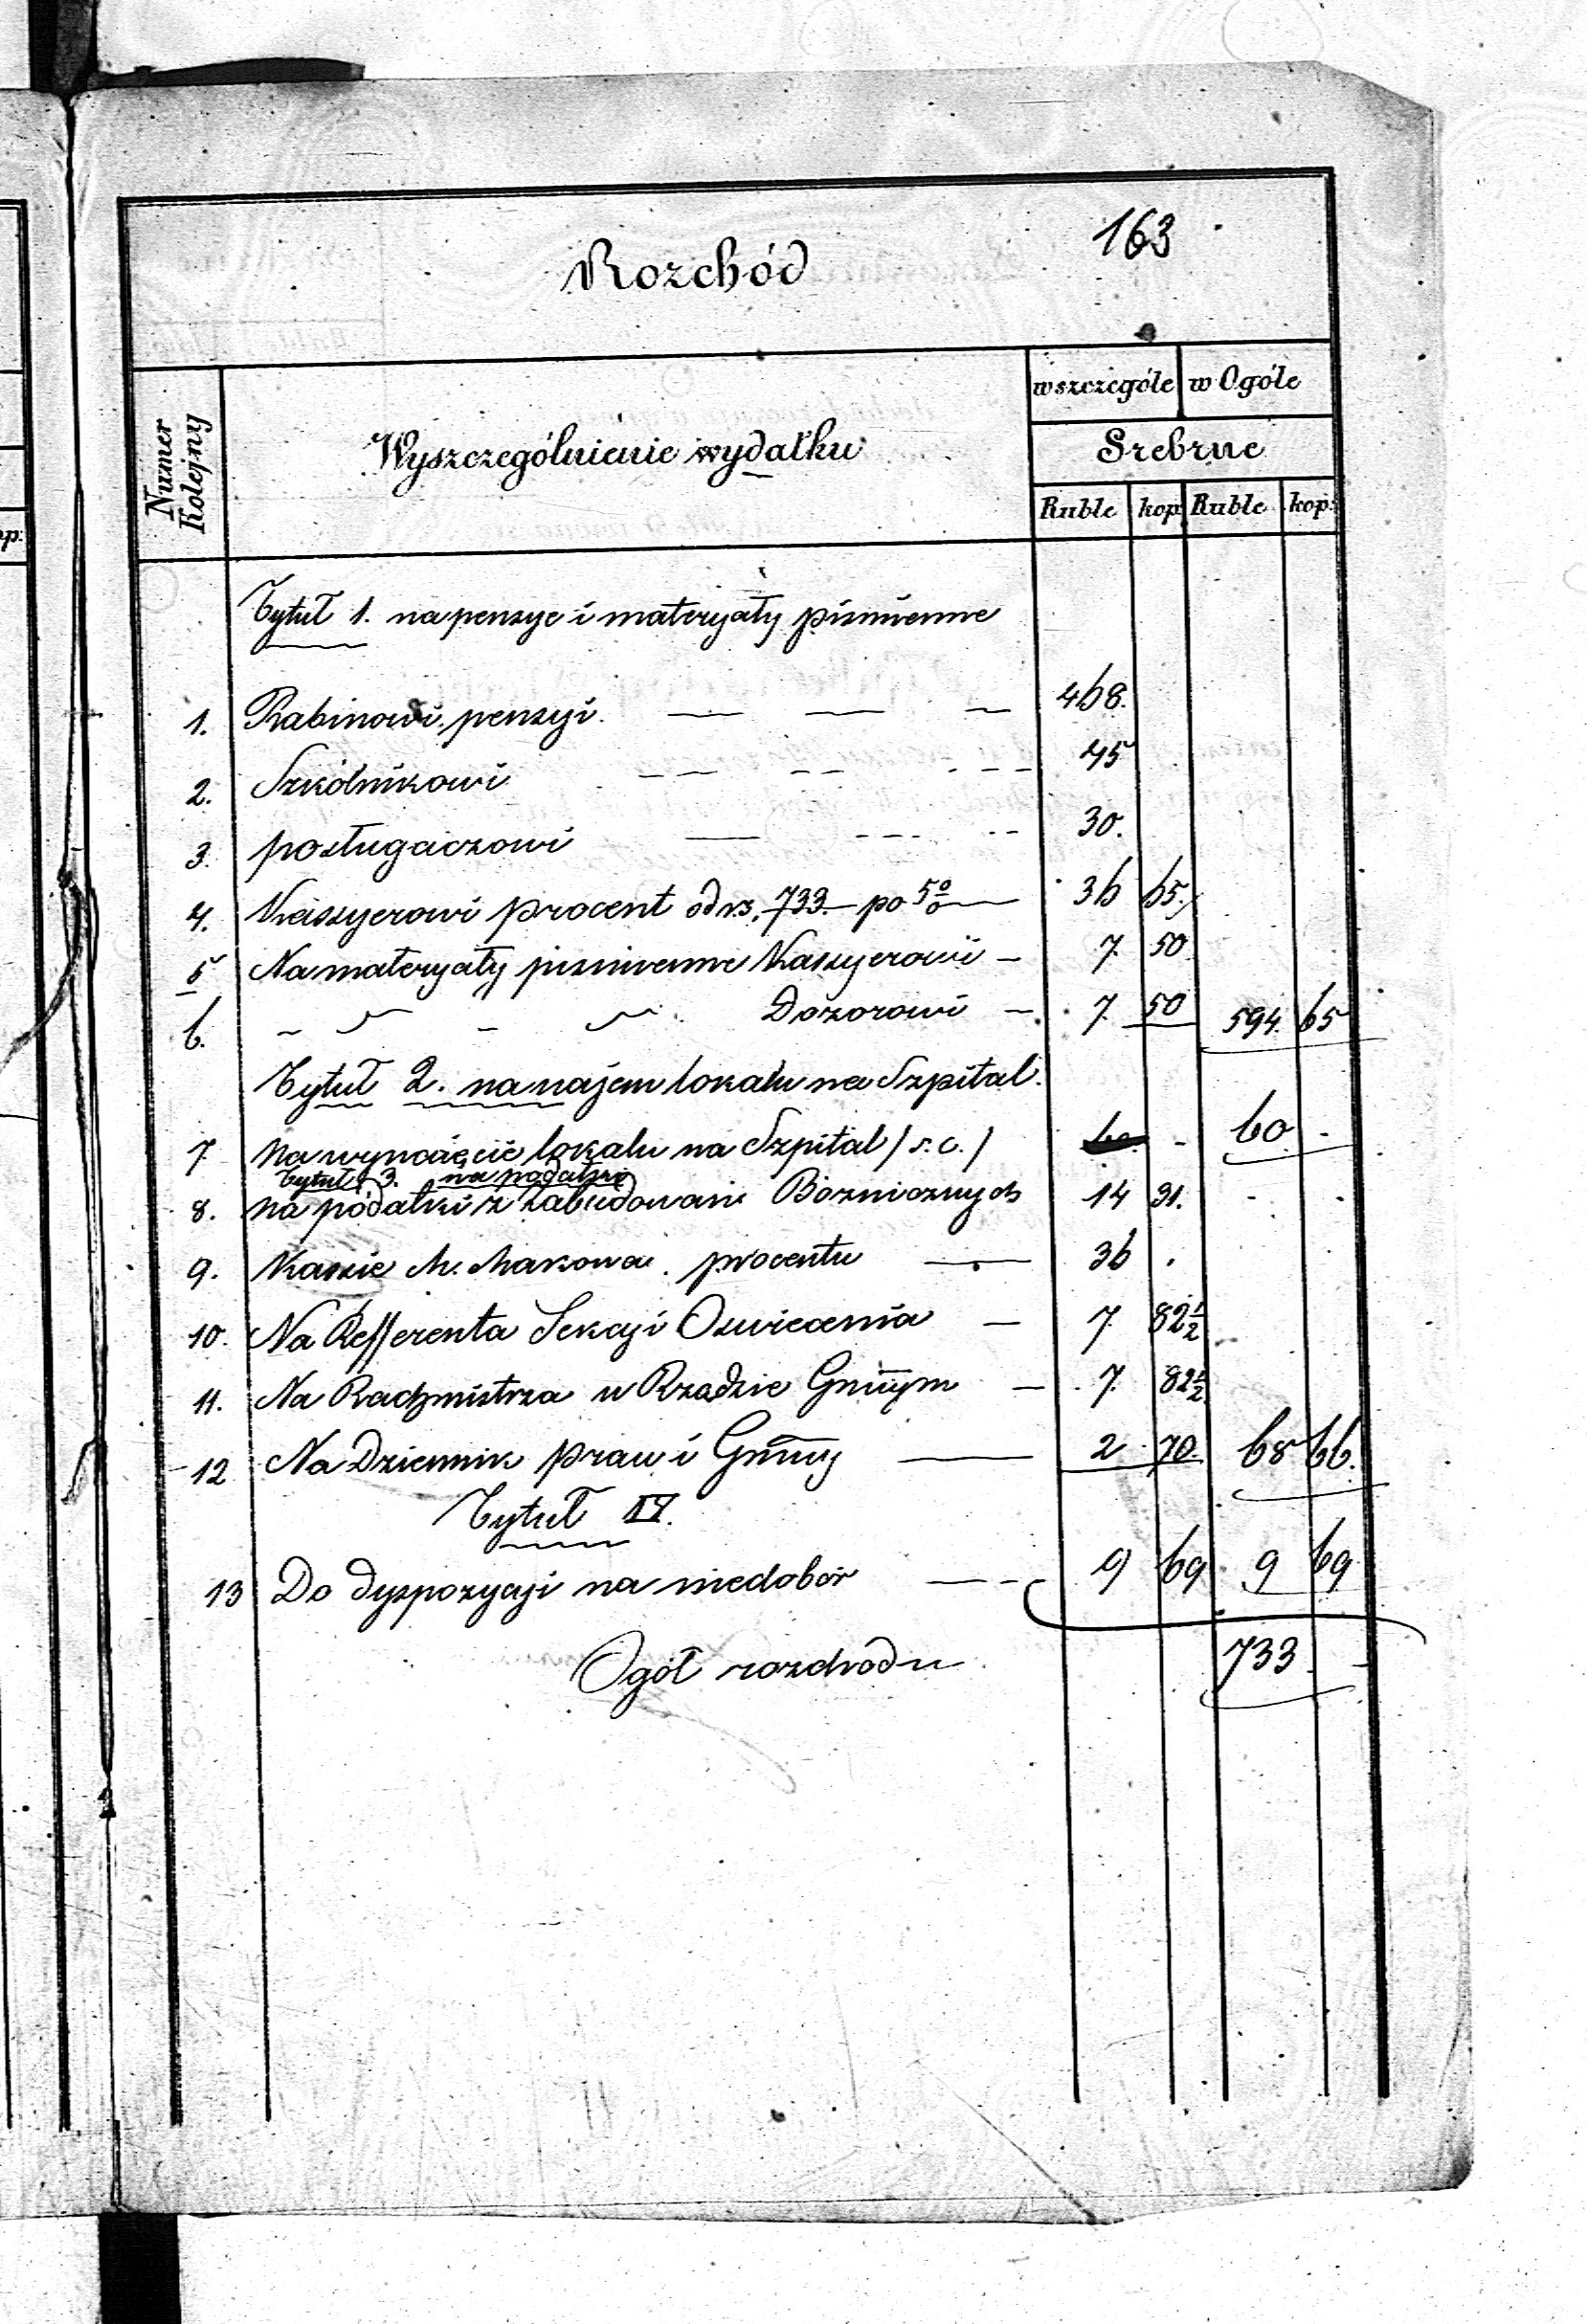 163
Rozchód
Numer Kolejny
Wyszczególnienie wydatku
w szczególe w Ogóle
Srebrne
Ruble kop. Ruble kop:
Tytuł 1. na pensye i materyały piśmienne
1. Rabinowi pensyi. 468.
2. Szkólnikowi 45
3. posługaczowi 30.
4. Kassyerowi procent od rs. 733. po 5% 36 65.
5 Na materyały piśmienne Kassyerowi 7. 50
6. „ „ Dozorowi 7. 50 594. 65
Tytuł 2. na najem lokalu na Szpital.
7 Na wynajęcie lokalu na Szpital / s.c. / 60. - 60. -
Tytuł 3. na podatki
8. na podatki z zabudowań Bożniczych 14 31. - -
9. Kassie M. Makowa. procentu 36 .
10. Na Refferenta Sekcyi Oswiecenia 7 82½
11. Na Rachmistrza w Rządzie Gmnym 7. 82½
12 Na Dziennik praw i Gmny 2 70. 68 66.
Tytuł IV.
13 Do dyspozycyi na niedobór 9 69 9 69
Ogół rozchodu 733 -
op: